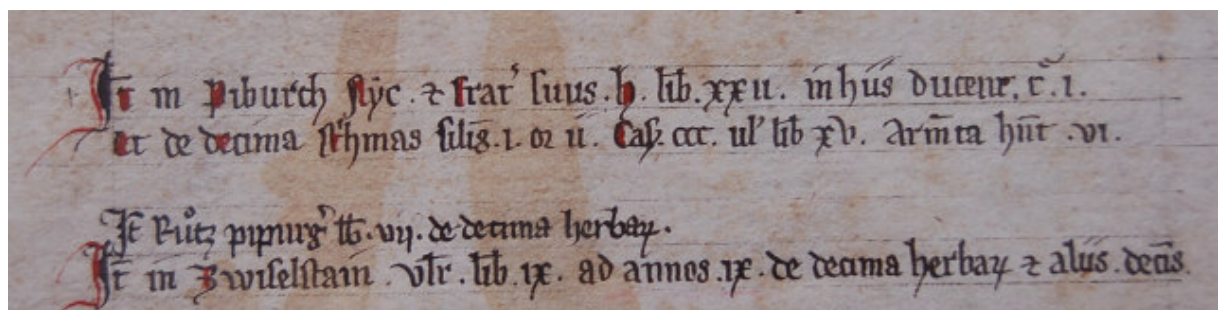 It in Piburch Nyc. ⁊ frat' suus .h. lib. xxii. in hui9 ducent. c. i.
et de decima st'hmas silig. i. or ii. Cas. ccc. ul' lib xv. Armta hnt .vi.
It Ruotz pipurg' lb. vij. de decima herbaꝝ.
It in Zwiselstain . Vlr. lib. ix. ad annos .ix. de decima herbaꝝ ⁊ aliis . decis